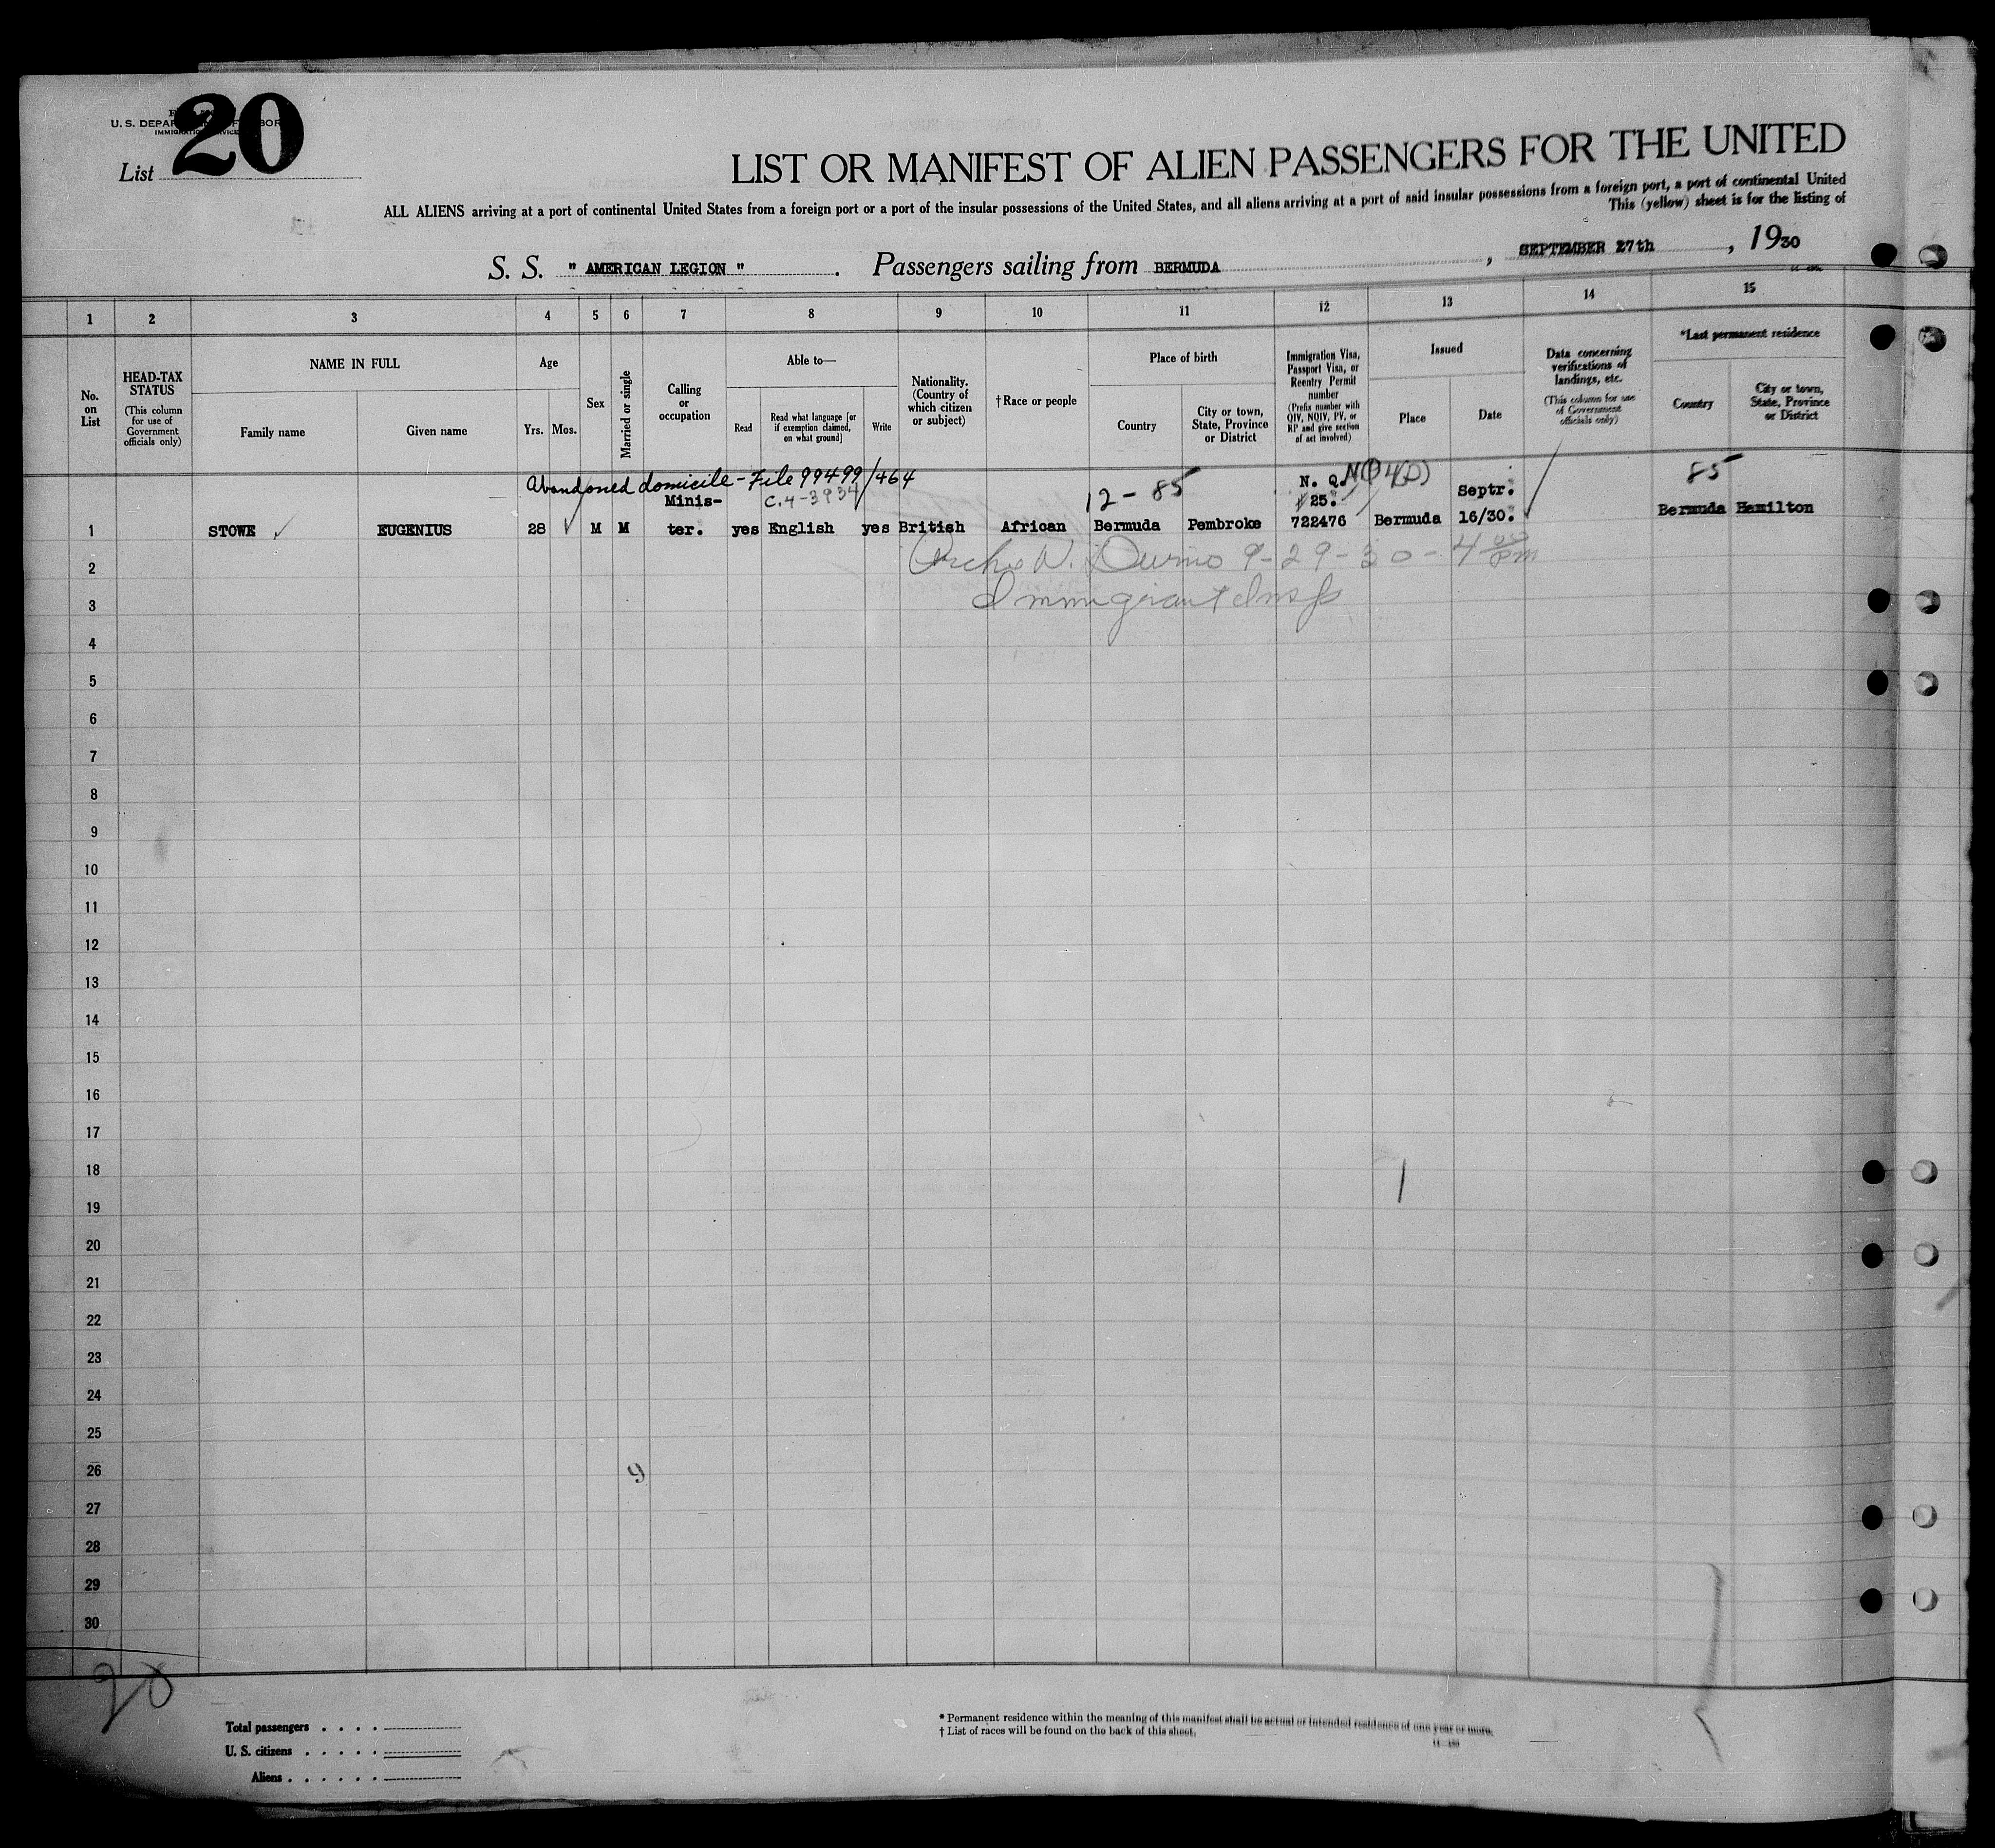 U. S. DEPARTMENT OF LABOR
IMMIGRATION SERVICE
List 20
LIST OR MANIFEST OF ALIEN PASSENGERS FOR THE UNITED
ALL ALIENS arriving at a port of continental United States from a foreign port or a port of the insular possessions of the United States, and all aliens arriving at a port of said insular possessions from a foreign port, a port of continental United
This (yellow) sheet is for the listing of
S. S. " AMERICAN LEGION " . Passengers sailing from BERMUDA , SEPTEMBER 27th , 1930
1 2 3 4 5 6 7 8 9 10 11 12 13 14 15
No. on List
HEAD-TAX STATUS
(This column for use of Government officials only)
NAME IN FULL
Family name Given name
Age
Yrs. Mos.
Sex
Married or single
Calling or occupation
Able to—
Read
Read what language [or if exemption claimed, on what ground]
Write
Nationality. (Country of which citizen or subject)
†Race or people
Place of birth
Country
City or town, State, Province or District
Immigration Visa, Passport Visa, or Reentry Permit number
(Prefix number with QIV, NQIV, PV, or RP and give section of act involved)
Issued
Place Date
Data concerning verifications of landings, etc.
(This column for use of Government officials only)
*Last permanent residence
Country
City or town, State, Province or District
Abandoned domicile - File 99499/464
C.4-3934
12 - 85
N. Q.
NQ 4(D)
85
Minis-
25.
Septr.
1 STOWE EUGENIUS 28 M M ter. yes English yes British African Bermuda Pembroke 722476 Bermuda 16/30. Bermuda Hamilton
2
9-29-30 - 4 00 pm
3
Immigrant Insp
4
5
6
7
8
9
10
11
12
13
14
15
16
17
18
19
20
21
22
23
24
25
26
9
27
28
29
30
20
Total passengers . . . .
U. S. citizens . . . . .
Aliens . . . . . .
* Permanent residence within the meaning of this manifest shall be actual or intended residence of one year or more.
† List of races will be found on the back of this sheet.